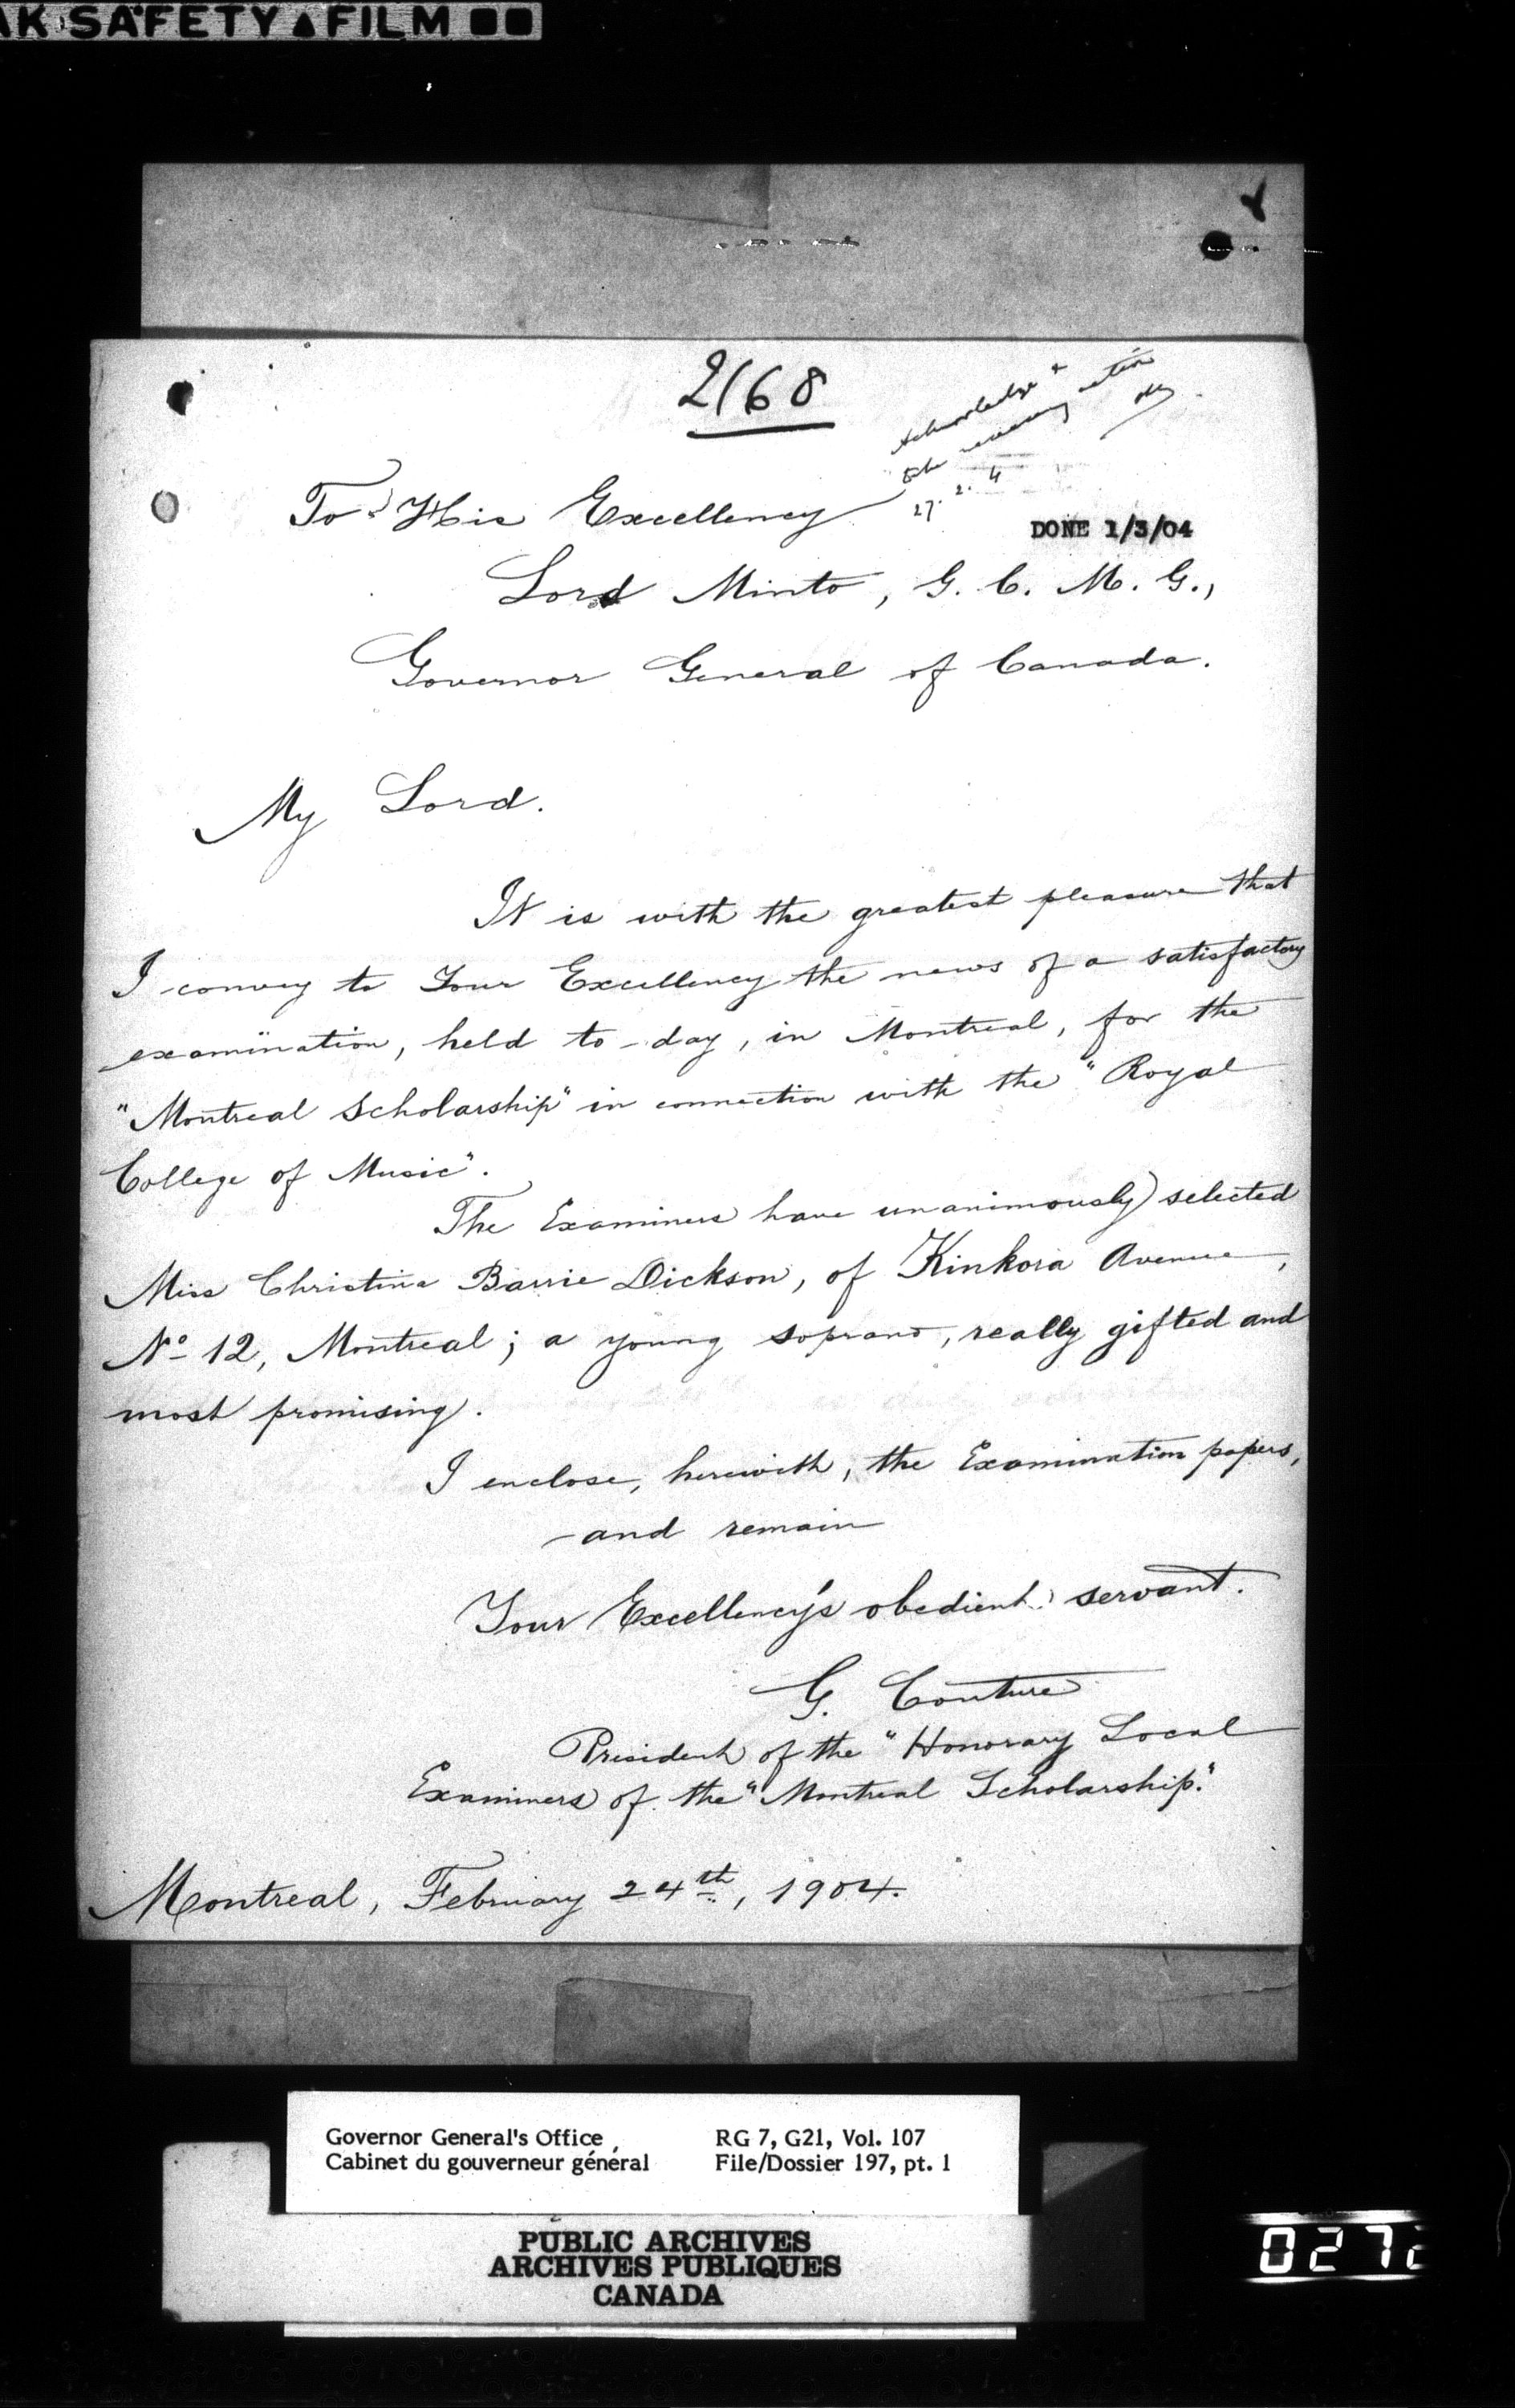 AK SAFETY ▲ FILM
2168
Acknowledge &
take necessary action
27. 2. 4
To His Excellency
DONE 1/3/04
Lord Minto, G. C. M. G.,
Governor General of Canada.
My Lord.
It is with the greatest pleasure that
I convey to Your Excellency the news of a satisfactory
examination, held to-day, in Montreal, for the
"Montreal Scholarship" in connection with the "Royal
College of Music".
The Examiners have unanimously selected
Miss Christina Barrie Dickson, of Kinkora Avenue,
No 12, Montreal; a young soprano, really gifted and
most promising.
I enclose, herewith, the Examination papers,
and remain
Your Excellency's obedient servant.
G. Couture
President of the "Honorary Local
Examiners of the "Montreal Scholarship."
Montreal, February 24th, 1904.
Governor General's Office
Cabinet du gouverneur général
RG 7, G21, Vol. 107
File/Dossier 197, pt. 1
PUBLIC ARCHIVES
ARCHIVES PUBLIQUES
CANADA
027